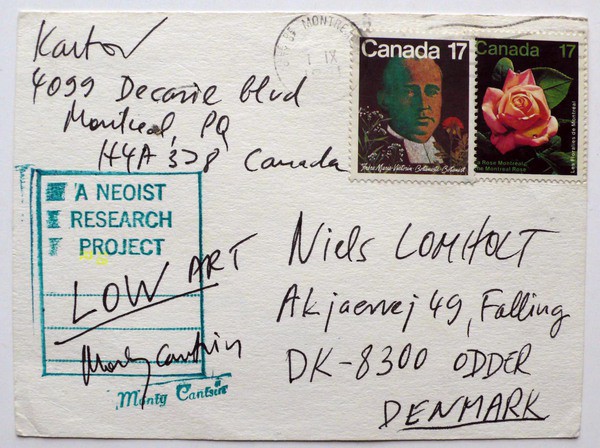 Kantor
4099 Decarie Blvd
Montreal, PQ
H4A 3J8 Canada
MONTREAL
IX
Canada 17
Frère Marie-Victorin - Botaniste - Botanist
Canada 17
La Rose Montréal
The Montreal Rose
Les Floralies de Montréal
A NEOIST
RESEARCH
PROJECT
LOW ART
Monty Cantsin
Monty Cantsin
Niels LOMHOLT
Akjaervej 49, Falling
DK-8300 ODDER
DENMARK